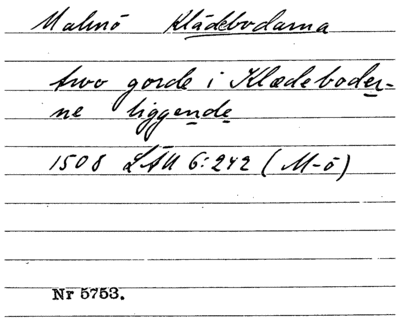 Malmö Klädebodarna
two gorde i Klædeboder-
ne liggende
1508 LÄU 6:242 (M-ö)
Nr 5753.